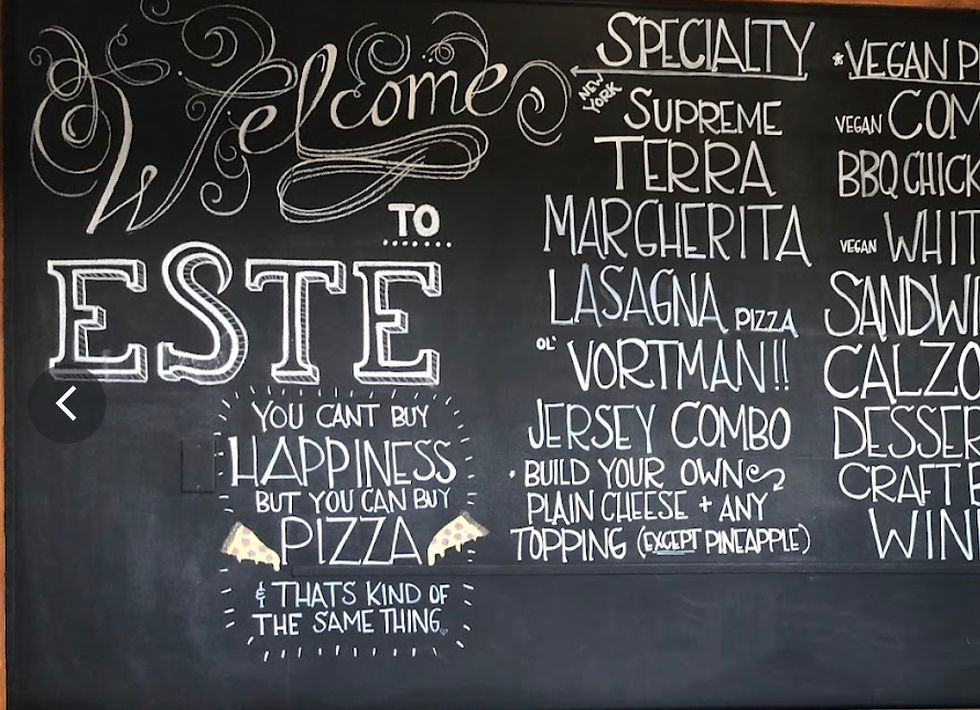 Welcome
TO
ESTE
YOU CANT BUY
HAPPINESS
BUT YOU CAN BUY
PIZZA
& THATS KIND OF
THE SAME THING
SPECIALTY
NEW YORK SUPREME
TERRA
MARGHERITA
LASAGNA PIZZA
OL' VORTMAN!!
JERSEY COMBO
• BUILD YOUR OWN
PLAIN CHEESE + ANY
TOPPING (EXCEPT PINEAPPLE)
*VEGAN P
VEGAN COM
BBQ CHICK
VEGAN WHIT
SANDWI
CALZO
DESSER
CRAFT
WIN